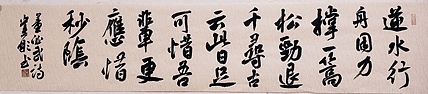 逆水行
舟用力
撐一篙
松勁退
千尋古
云此日足
可惜吾
輩更
應惜
秒陰
董必武詩